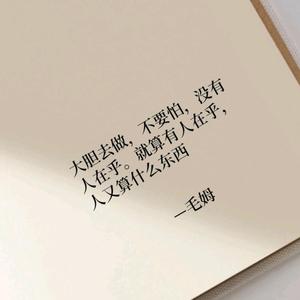 大胆去做，不要怕，没有
人在乎。就算有人在乎，
人又算什么东西
—毛姆